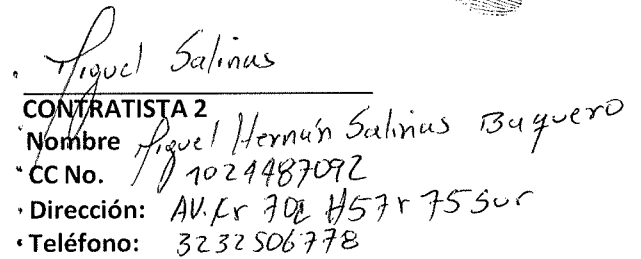 Miguel Salinas
CONTRATISTA 2
Nombre Miguel Hernán Salinas Baquero
CC No. 1024487092
Dirección: AV. Kr 70 #57r 75 Sur
Teléfono: 3232506778